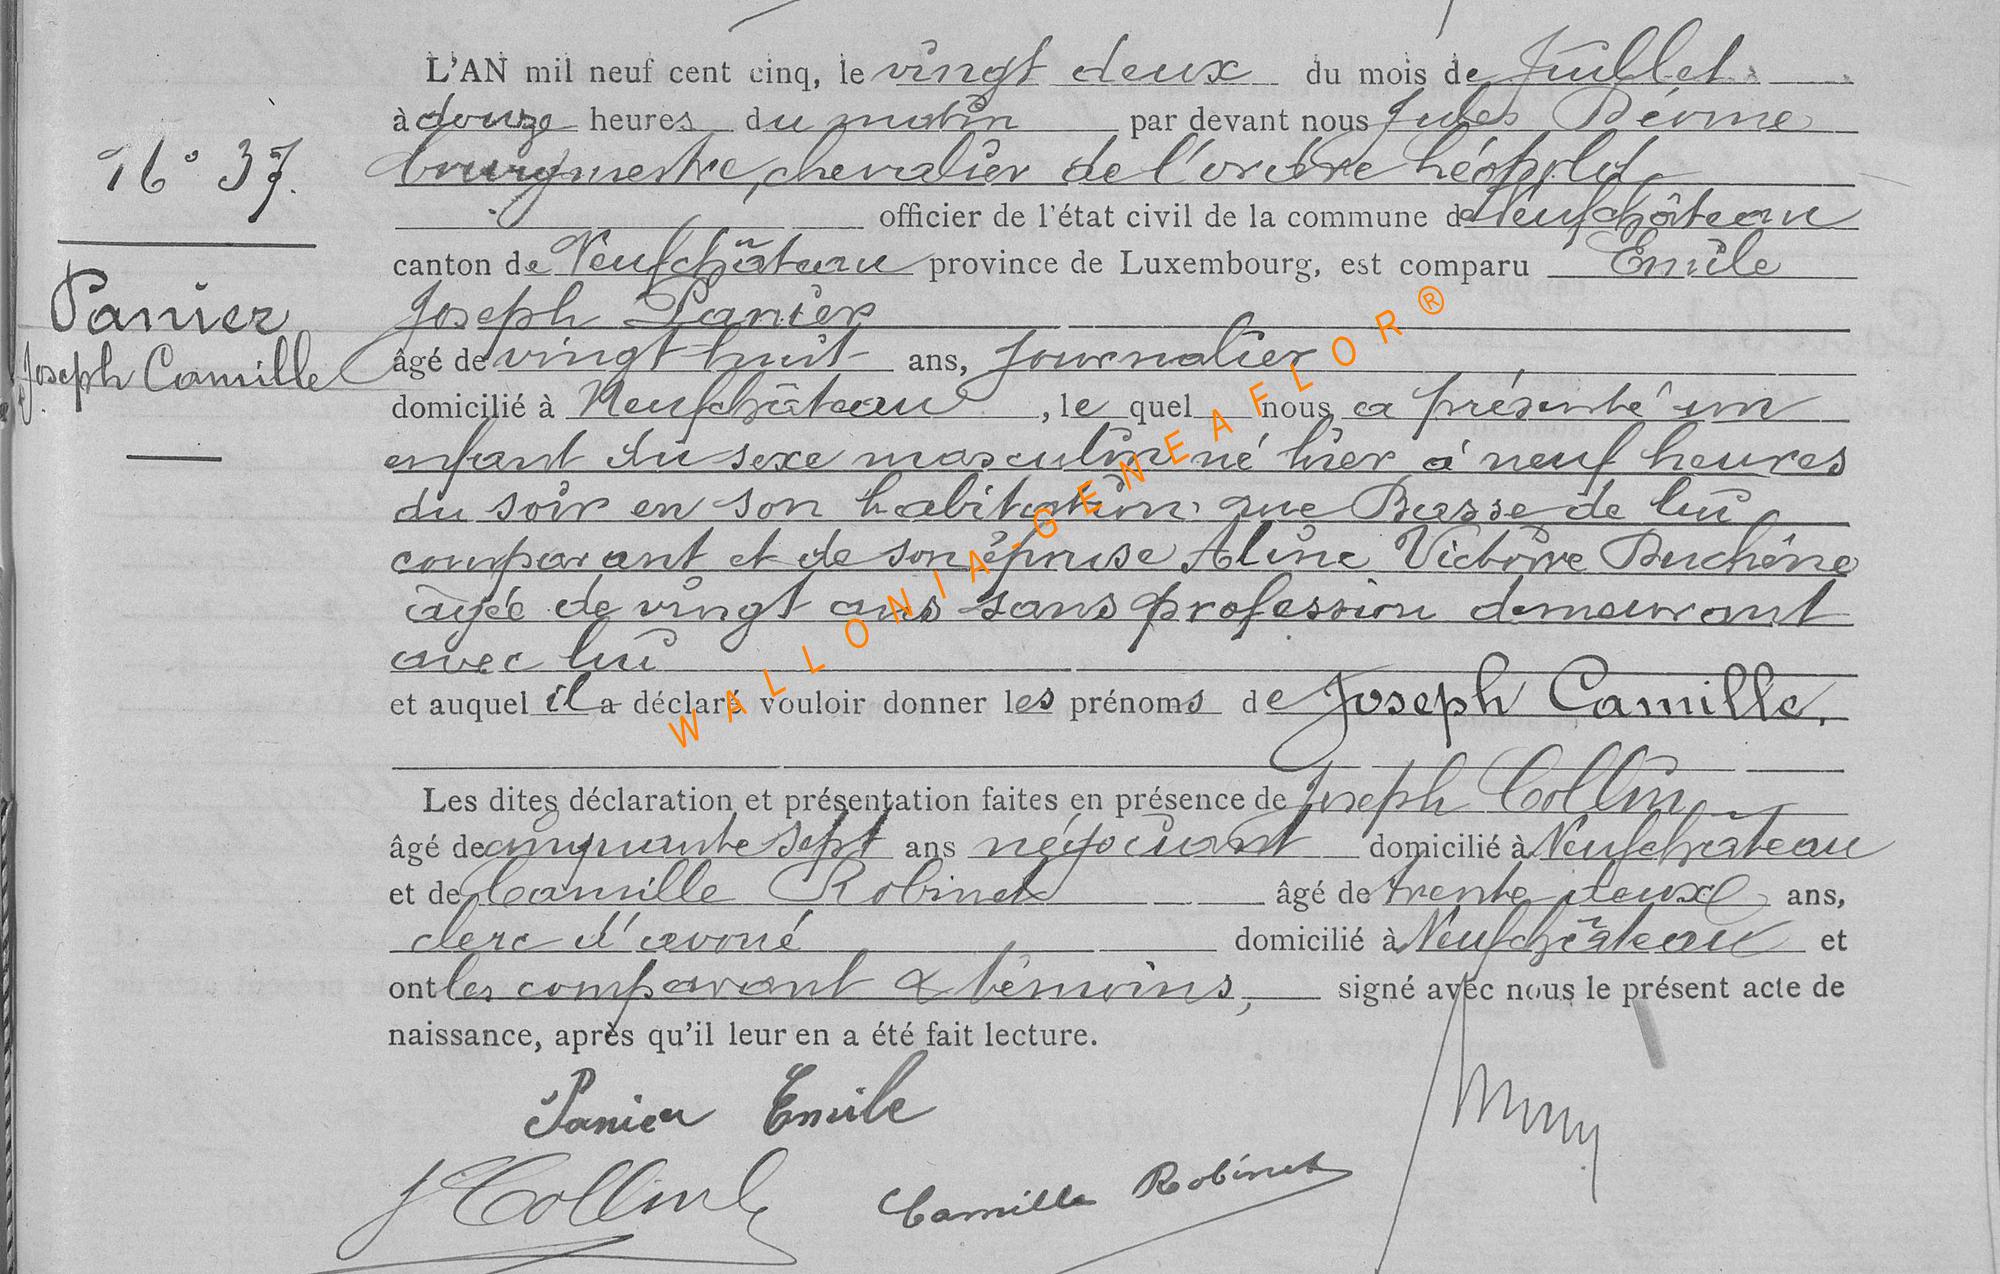 L'AN mil neuf cent cinq, le vingt deux du mois de Juillet
à douze heures du matin par devant nous Jules
bourgmestre, chevalier de l'ordre Léopold,
officier de l'état civil de la commune de Neufchâteau
canton de Neufchâteau province de Luxembourg, est comparu Emile
Joseph Panier
âgé de vingt huit ans, journalier
domicilié à Neufchâteau, le quel nous a présenté un
enfant du sexe masculin né hier à neuf heures
du soir en son habitation rue Basse de lui
comparant et de son épouse Aline Victoire Duchêne
âgée de vingt ans sans profession demeurant
avec lui
et auquel il a déclaré vouloir donner les prénoms de Joseph Camille.
Les dites déclaration et présentation faites en présence de Joseph Collin
âgé de cinquante sept ans négociant domicilié à Neufchâteau
et de Camille Robinet âgé de trente deux ans,
clerc d'avoué domicilié à Neufchâteau et
ont les comparant & témoins, signé avec nous le présent acte de
naissance, après qu'il leur en a été fait lecture.
Panier Emile
J Collin
Camille Robinet
N° 37.
Panier
Joseph Camille
WALLONIA-GENEAFLOR®